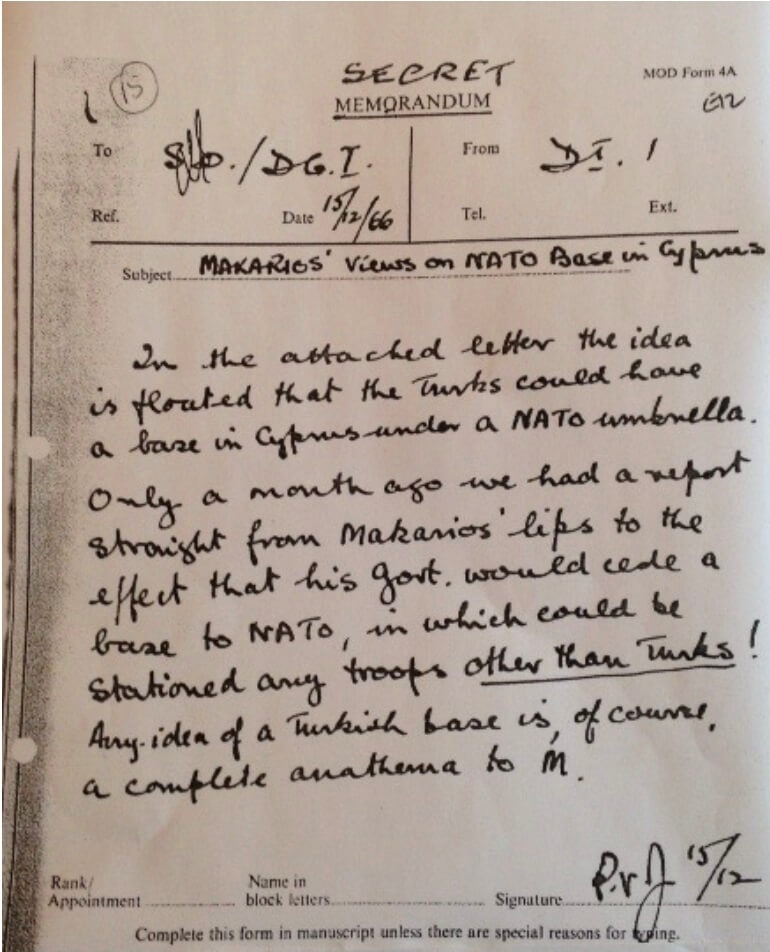 15
SECRET
MOD Form 4A
MEMORANDUM
E12
To /DG.I.
From DI. 1
Ref.
Date 15/12/66
Tel.
Ext.
Subject MAKARIOS' Views on NATO Base in Cyprus
In the attached letter the idea
is floated that the Turks could have
a base in Cyprus under a NATO umbrella.
Only a month ago we had a report
straight from Makarios' lips to the
effect that his Govt. would cede a
base to NATO, in which could be
stationed any troops other than Turks!
Any idea of a Turkish base is, of course,
a complete anathema to M.
Rank/
Appointment
Name in
block letters
Signature P.v J 15/12
Complete this form in manuscript unless there are special reasons for typing.